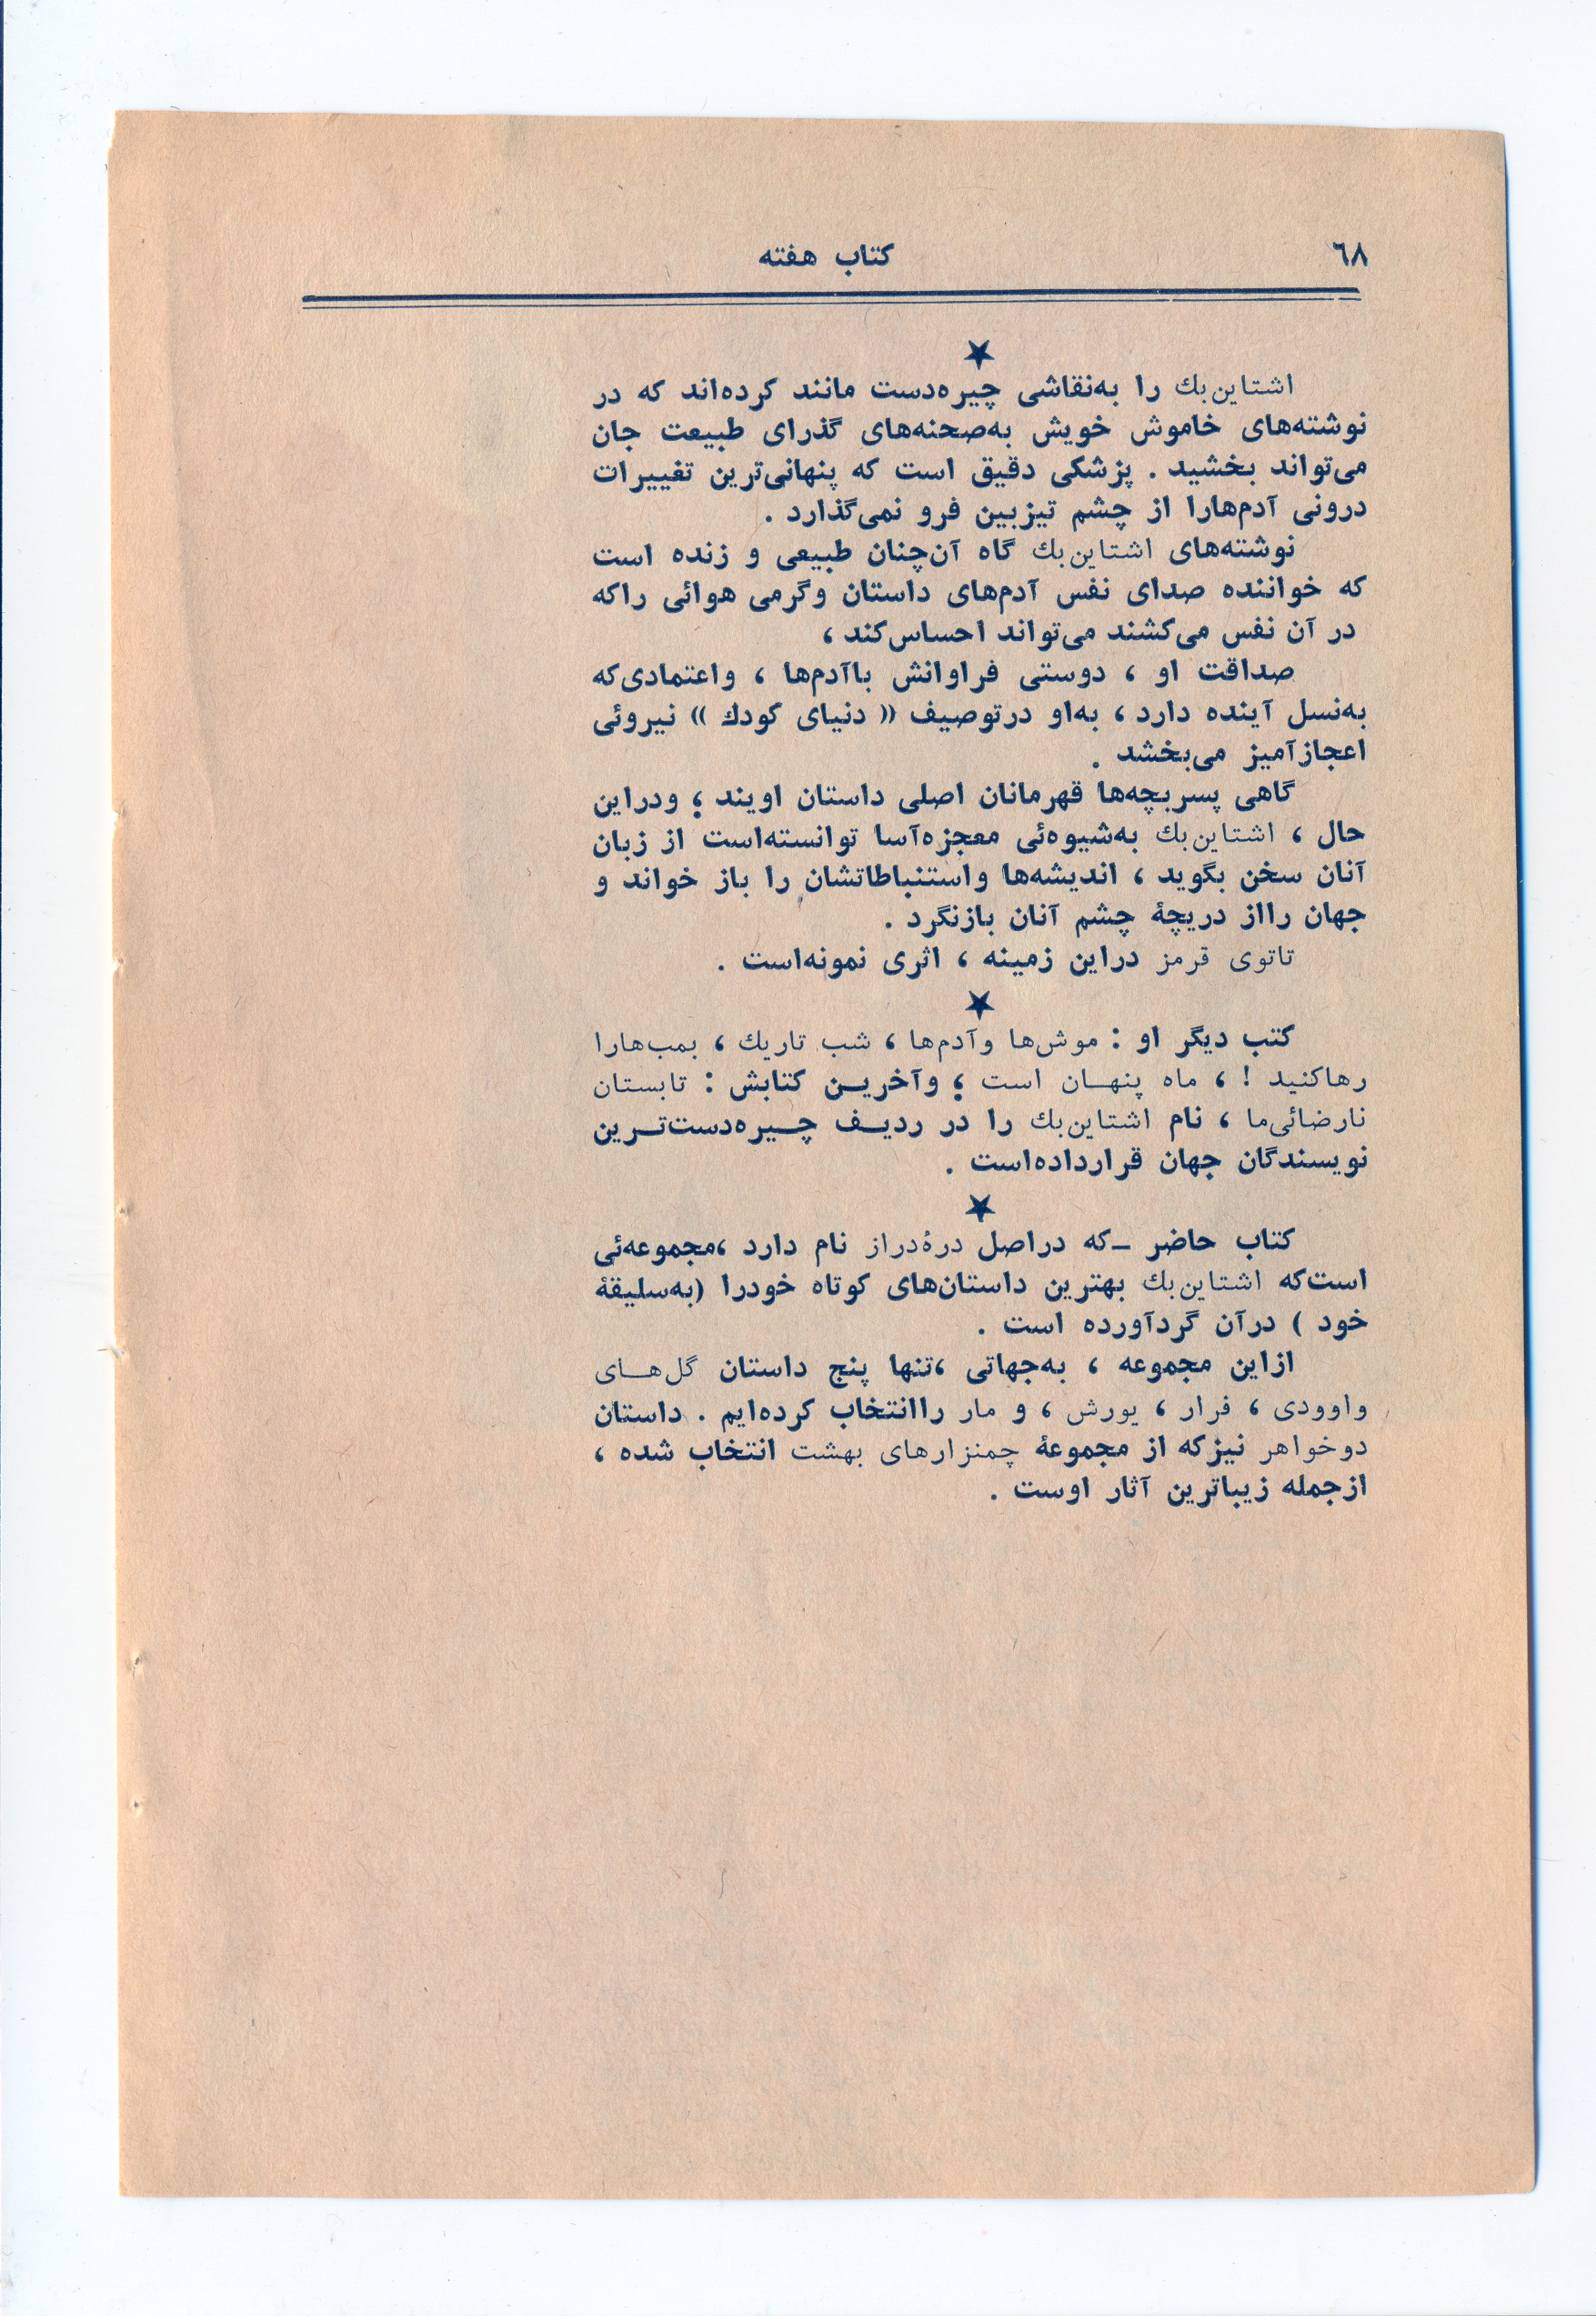 ۶۸
کتاب هفته
★
اشتاین‌بك را به‌نقاشی چیره‌دست مانند کرده‌اند که در
نوشته‌های خاموش خویش به‌صحنه‌های گذرای طبیعت جان
می‌تواند بخشید . پزشکی دقیق است که پنهانی‌ترین تغییرات
درونی آدم‌هارا از چشم تیزبین فرو نمی‌گذارد .
نوشته‌های اشتاین‌بك گاه آن‌چنان طبیعی و زنده است
که خواننده صدای نفس آدم‌های داستان وگرمی هوائی راکه
در آن نفس می‌کشند می‌تواند احساس‌کند ،
صداقت او ، دوستی فراوانش باآدم‌ها ، واعتمادی‌که
به‌نسل آینده دارد ، به‌او درتوصیف « دنیای کودك » نیروئی
اعجازآمیز می‌بخشد .
گاهی پسربچه‌ها قهرمانان اصلی داستان اویند ؛ ودراین
حال ، اشتاین‌بك به‌شیوه‌ئی معجزه‌آسا توانسته‌است از زبان
آنان سخن بگوید ، اندیشه‌ها واستنباطاتشان را باز خواند و
جهان رااز دریچهٔ چشم آنان بازنگرد .
تاتوی قرمز دراین زمینه ، اثری نمونه‌است .
★
کتب دیگر او : موش‌ها وآدم‌ها ، شب تاریك ، بمب‌هارا
رهاکنید ! ، ماه پنهان است ؛ وآخرین کتابش : تابستان
نارضائی‌ما ، نام اشتاین‌بك را در ردیف چیره‌دست‌ترین
نویسندگان جهان قرارداده‌است .
★
کتاب حاضر –که دراصل درهٔدراز نام دارد ،مجموعه‌ئی
است‌که اشتاین‌بك بهترین داستان‌های کوتاه خودرا (به‌سلیقهٔ
خود ) درآن گردآورده است .
ازاین مجموعه ، به‌جهاتی ،تنها پنج داستان گل‌های
واوودی ، فرار ، یورش ، و مار راانتخاب کرده‌ایم . داستان
دوخواهر نیزکه از مجموعهٔ چمنزارهای بهشت انتخاب شده ،
ازجمله زیباترین آثار اوست .